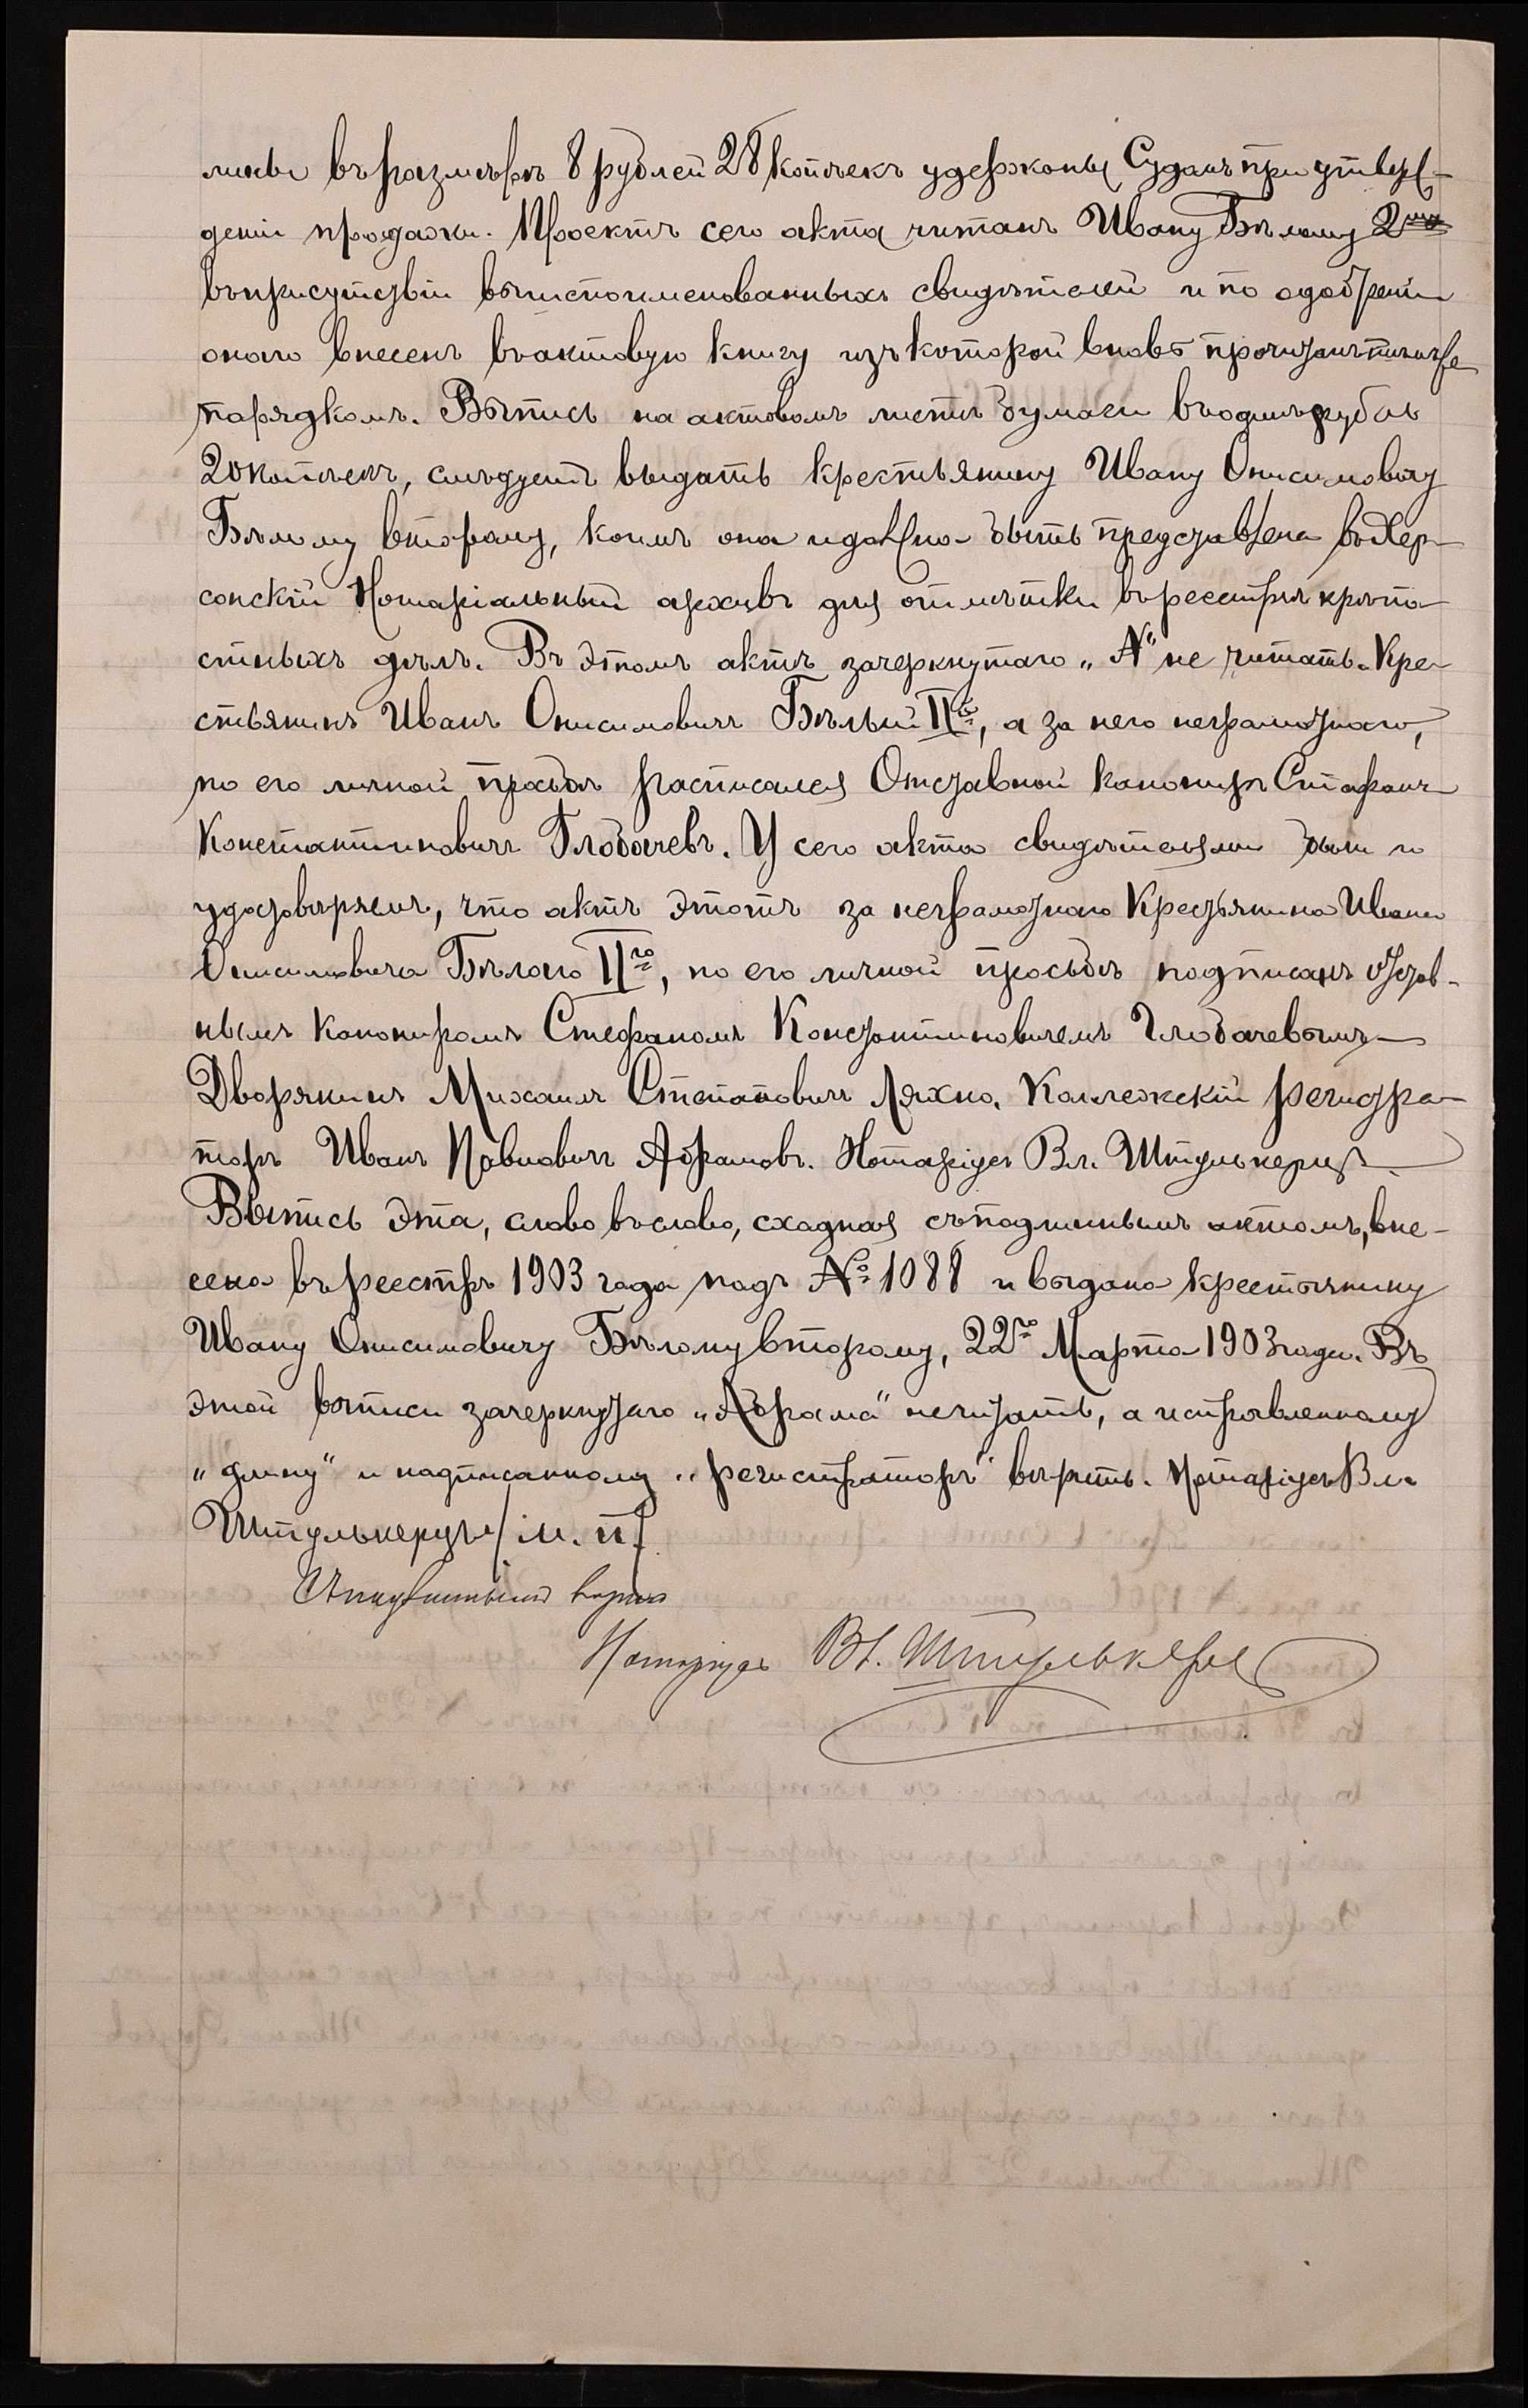 лины въ размѣрѣ 8 рублей 28 копѣекъ удержаны Судомъ при утверж-
деніи продажи. Проектъ сего акта читанъ Ивану Бѣлому 2му
въ присутствіи вышепоименованныхъ свидѣтелей и по одобреніи
онаго внесенъ въ актовую книгу изъ которой вновь прочитанъ тѣмъ же
порядкомъ. Выпись на актовомъ листѣ бумаги въ одинъ рубль
20 копѣекъ, слѣдуетъ выдать крестьянину Ивану Онисимовичу
Бѣлому второму, коимъ она и должна быть представлена въ Хер-
сонскій Нотаріальный архивъ для отмѣтки въ реестрѣ крѣпо-
стныхъ дѣлъ. Въ этомъ актѣ зачеркнутаго „А" не читать. Кре-
стьянинъ Иванъ Онисимовичъ Бѣлый IIй, а за него неграмотнаго,
по его личной просьбѣ расписался Отставной канониръ Стефанъ
Константиновичъ Глобачевъ. У сего акта свидѣтелями были и
удостовѣряемъ, что актъ этотъ за неграмотнаго Крестьянина Ивана
Онисимовича Бѣлого IIго, по его личной просьбѣ подписанъ отстав-
нымъ канониромъ Стефаномъ Константиновичемъ Глобачевымъ
Дворянинъ Михаилъ Степановичъ Ляхно. Коллежскій регистра-
торъ Иванъ Павловичъ Абрамовъ. Нотаріусъ Вл. Штулькерцъ.
Выпись эта, слово въ слово, сходная съ подлиннымъ актомъ, вне-
сена въ реестръ 1903 года подъ № 1088 и выдана крестьянину
Ивану Онисимовичу Бѣлому второму, 22го Марта 1903 года. Въ
этой выписи зачеркнутаго „Абрама" не читать, а исправленному
„длину" и надписанному „регистраторъ" вѣрить. Нотаріусъ Вл.
Штулькерцъ / м. п. /
Съ подлиннымъ вѣрно
Нотаріусъ Вл. Штулькерцъ